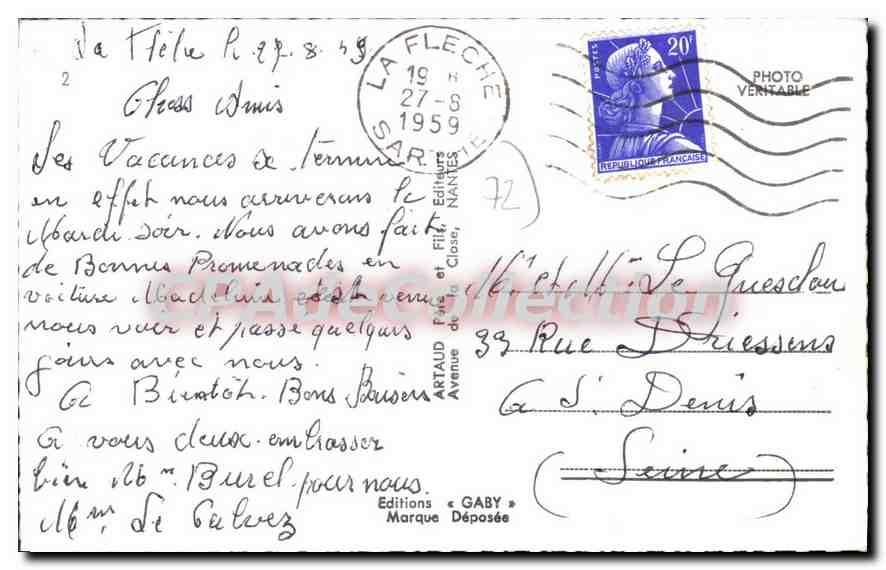 La Flèche le 27.8.59
2
Chers Amis
Les Vacances se termine
en effet nous arriverons le
Mardi Soir. Nous avons fait
de Bonnes Promenades en
voiture Madeleine est venu
nous voir et passe quelques
jours avec nous.
A Bientôt. Bons Baisers
A vous deux. embrasser
bien Mme Burel. pour nous.
Mme Le Calvez
LA FLECHE
19 H
27-8
1959
SARTHE
POSTES
20F
REPUBLIQUE FRANÇAISE
PHOTO
VÉRITABLE
72
ARTAUD Père et Fils, Editeurs
Avenue de la Close, NANTES
Mr et Mme Le Guesclou
33 Rue Driessens
A St. Denis
(Seine)
Editions « GABY »
Marque Déposée
CPADeCollection